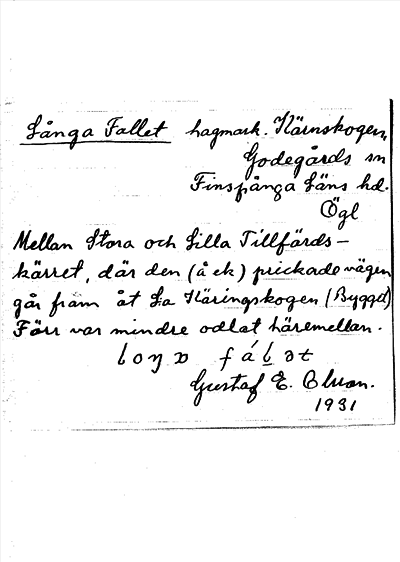 Långa Fallet hagmark. Kärnskogen,
Godegårds sn
Finspånga läns hd.
Ögl
Mellan Stora och Lilla Tillfärds-
kärret, där den (å ek) prickade vägen
går fram åt La Käringskogen (Bygget)
Förr var mindre odlat häremellan.
Gustaf E. Olson.
1931